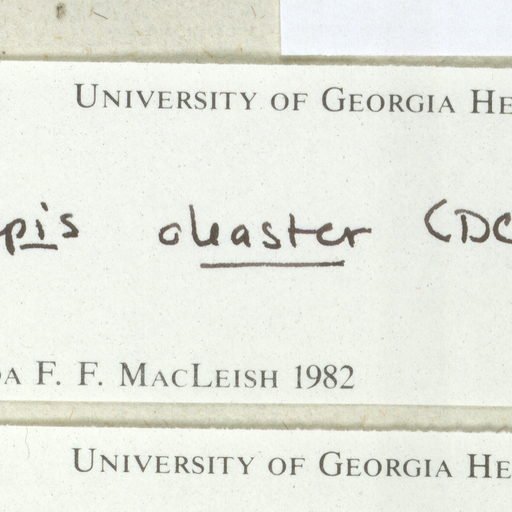 UNIVERSITY OF GEORGIA HE
pis oleaster (DC
DA F. F. MACLEISH 1982
UNIVERSITY OF GEORGIA HE